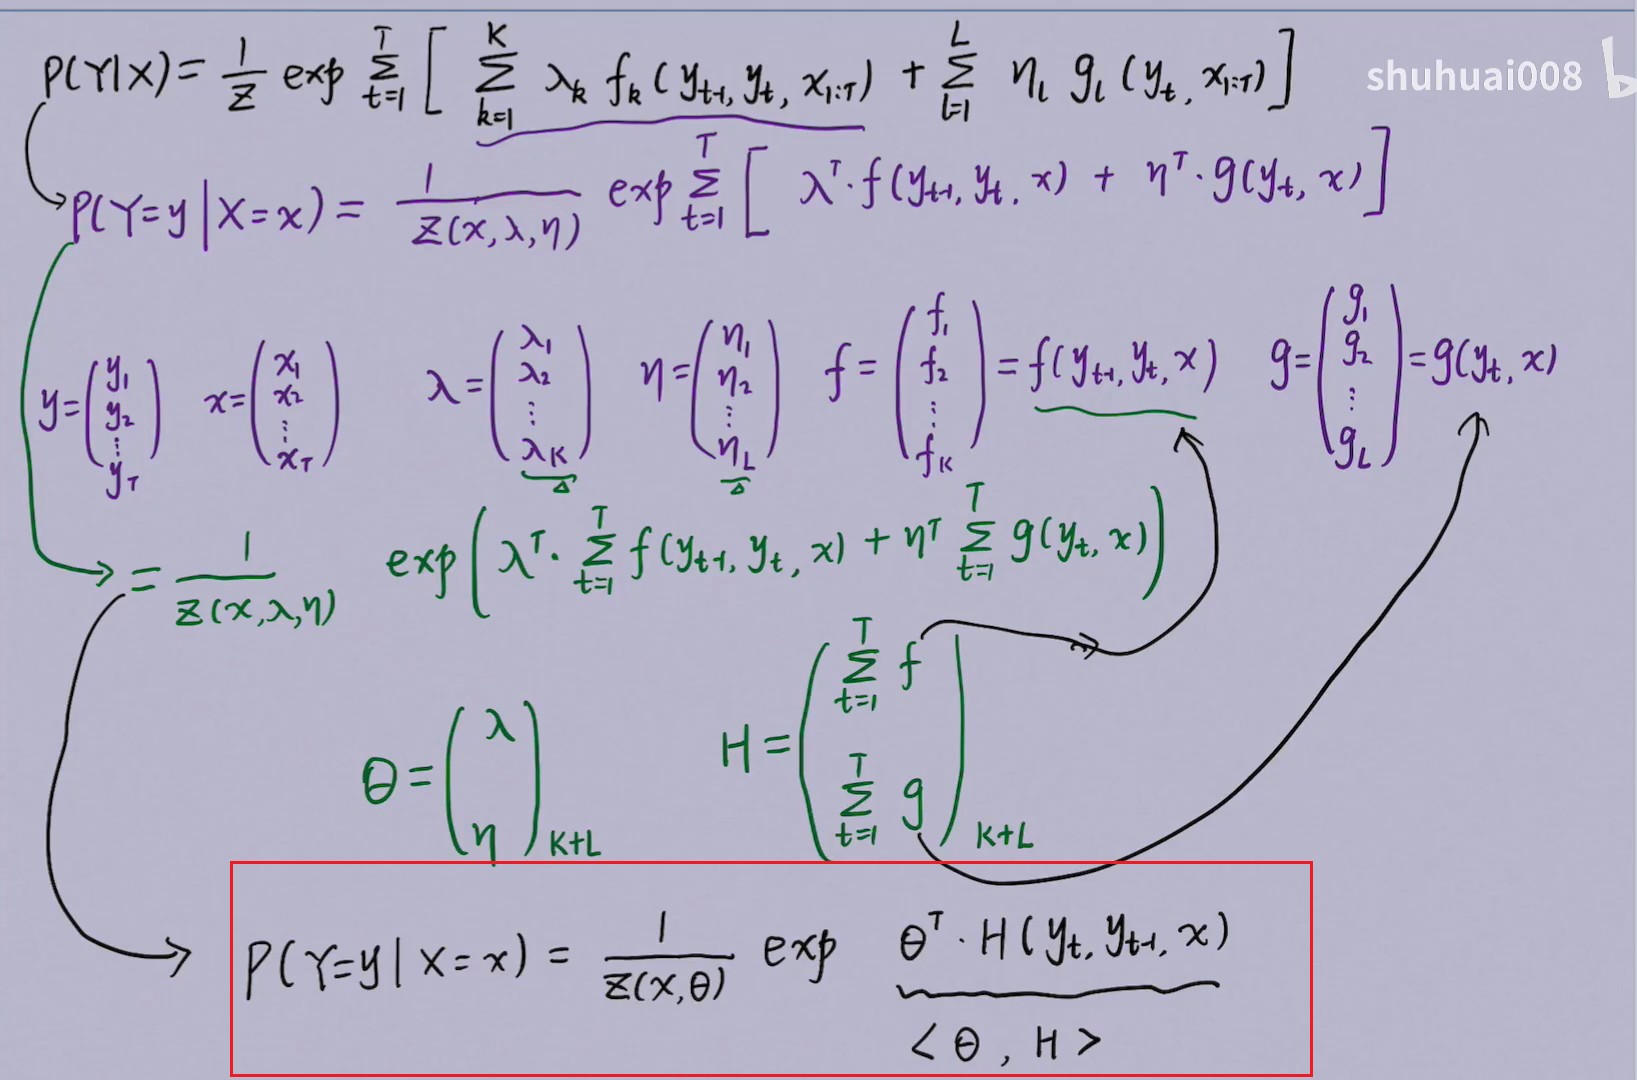 P(Y|X) = 1/Z exp Σ_{t=1}^{T} [ Σ_{k=1}^{K} λ_k f_k(y_{t-1}, y_t, x_{1:T}) + Σ_{l=1}^{L} η_l g_l(y_t, x_{1:T}) ]
shuhuai008 b
P(Y=y|X=x) = 1/Z(x,λ,η) exp Σ_{t=1}^{T} [ λ^T·f(y_{t-1}, y_t, x) + η^T·g(y_t, x) ]
y=(y_1 y_2 ⋮ y_T) x=(x_1 x_2 ⋮ x_T) λ=(λ_1 λ_2 ⋮ λ_K) η=(η_1 η_2 ⋮ η_L) f=(f_1 f_2 ⋮ f_K)=f(y_{t-1}, y_t, x) g=(g_1 g_2 ⋮ g_L)=g(y_t, x)
= 1/Z(x,λ,η) exp( λ^T· Σ_{t=1}^{T} f(y_{t-1}, y_t, x) + η^T Σ_{t=1}^{T} g(y_t, x) )
θ=(λ η)_{K+L} H=(Σ_{t=1}^{T} f Σ_{t=1}^{T} g)_{K+L}
P(Y=y|X=x) = 1/Z(x,θ) exp θ^T·H(y_t, y_{t-1}, x)
<θ, H>